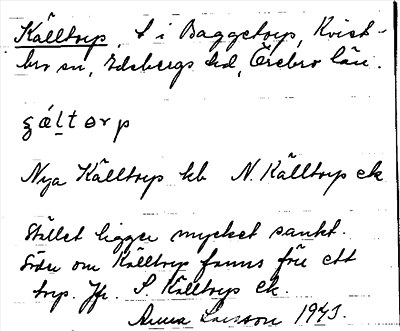 Källtorp, t i Baggetorp, Kvist-
bro sn, Edsbergs hd, Örebro län.
ʒáltorp
Nya Källtorp kb N. Källtorp ek
Stället ligger mycket sankt.
Söder om Källtorp fanns förr ett
torp. Jfr. S Källtorp ek.
Anna Larsson 1943.